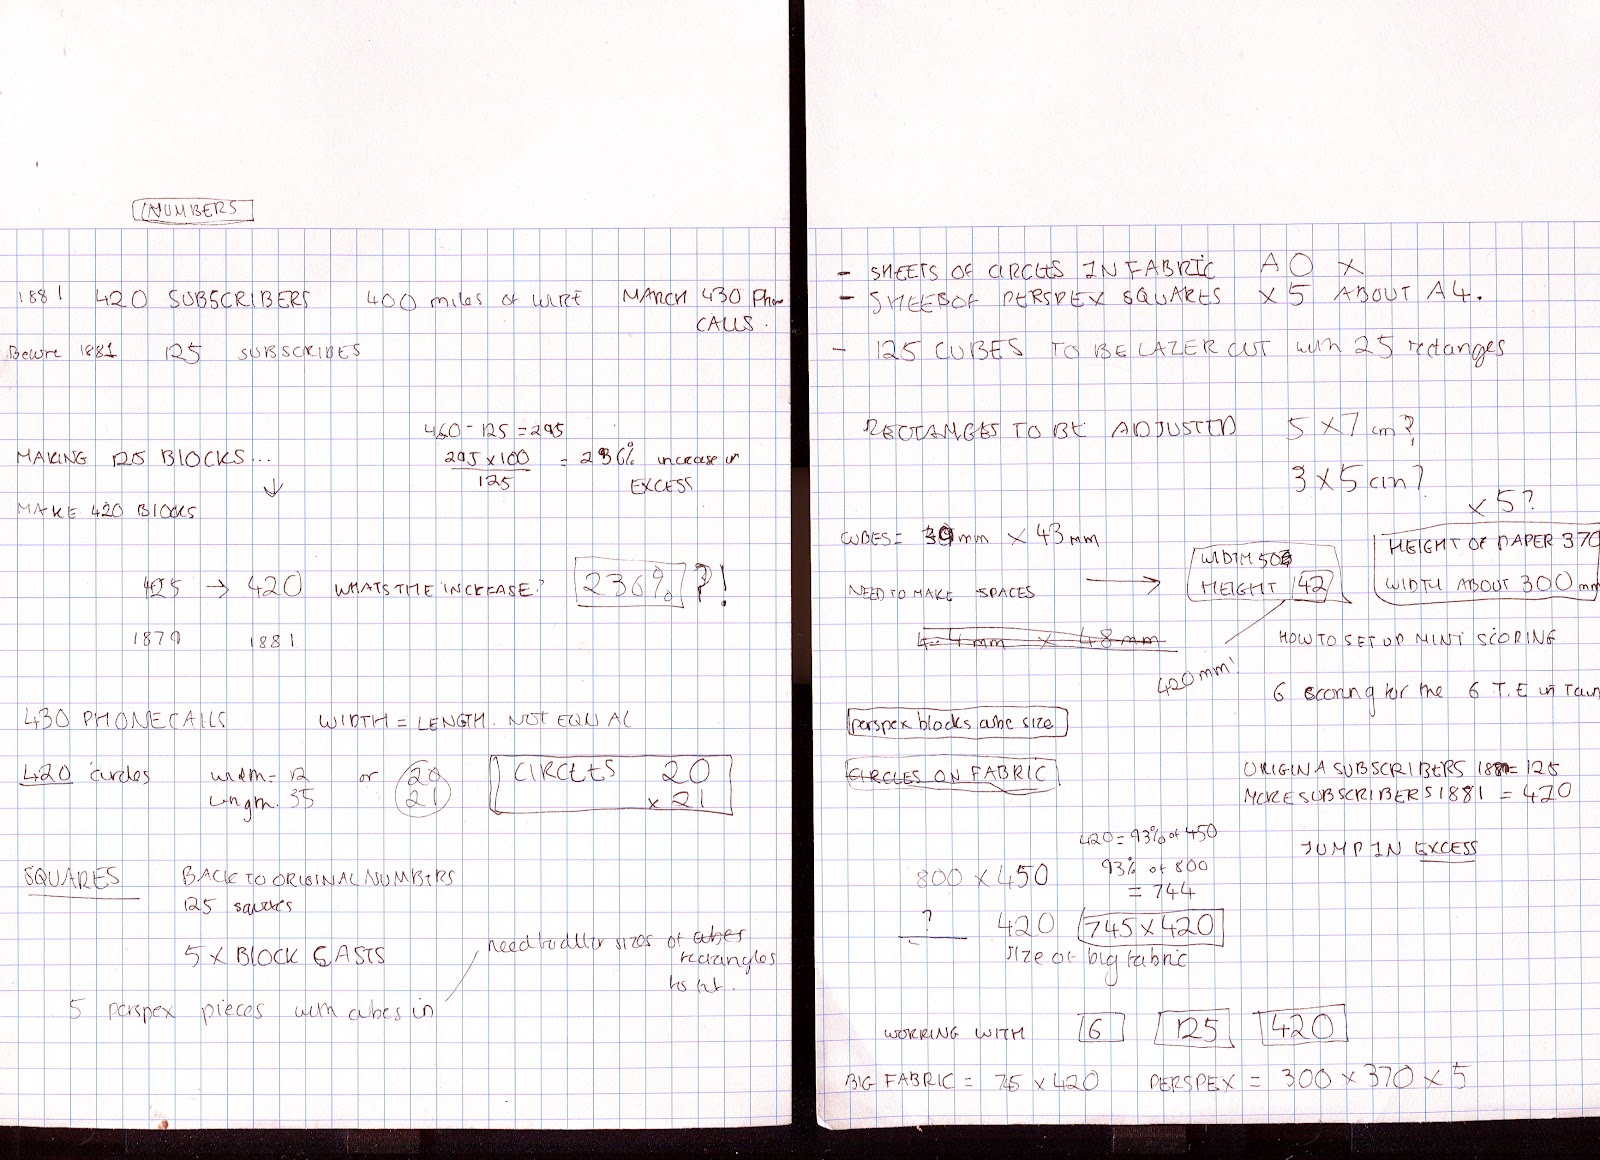 NUMBERS
1881 420 SUBSCRIBERS 400 miles of WIRE MARCH 430 Phone
CALLS.
Before 1881 125 SUBSCRIBES
460 - 125 = 295
MAKING 125 BLOCKS... 295 x 100 = 236% increase in
125 EXCESS
MAKE 420 BLOCKS
425 → 420 WHATS THE INCREASE? 236% ?!
1879 1881
430 PHONECALLS WIDTH = LENGTH. NOT EQUAL
420 circles width = 12 or 20 CIRCLES 20
Length. 35 21 x 21
SQUARES BACK TO ORIGINAL NUMBERS
125 squares
5 x BLOCK CASTS need to sizes of cubes
rectangles
5 perspex pieces with cubes in
- SHEETS OF CIRCLES IN FABRIC A0 x
- SHEES OF PERSPEX SQUARES x 5 ABOUT A4.
- 125 CUBES TO BE LAZER CUT with 25 rectanges
RECTANGES TO BE ADJUSTED 5 x 7 cm?
3 x 5 cm?
x 5?
CUBES = 39mm x 43mm
WIDTH 50 HEIGHT OF PAPER 370
NEED TO MAKE SPACES → HEIGHT 42 WIDTH ABOUT 300 mm
44mm x 48mm HOW TO SET UP MINI SCORING
420 mm! 6 scoring for the 6 T.E in
perspex blocks cube size
CIRCLES ON FABRIC ORIGINA SUBSCRIBERS = 125
MORE SUBSCRIBERS 1881 = 420
420 = 93% of 450
JUMP IN EXCESS
800 x 450 93% of 800
= 744
? 420 745 x 420
size of big fabric
WORKING WITH 6 125 420
BIG FABRIC = 75 x 420 PERSPEX = 300 x 370 x 5